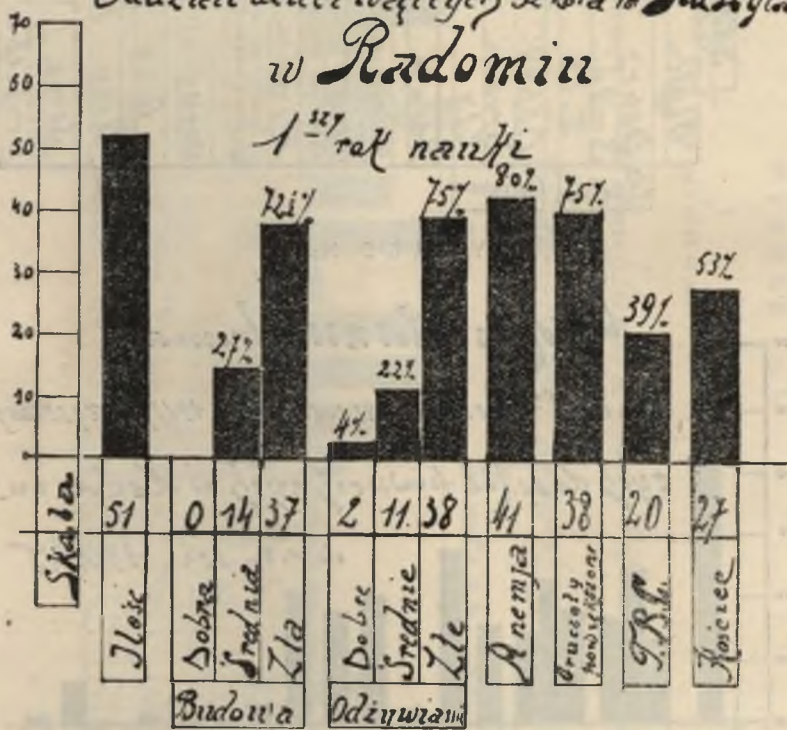 w Radomiu
1 szy rok nauki
70
60
50
40
30
20
10
0
27%
72%
4%
22%
75%
80%
75%
39%
53%
Skala
51 0 14 37 2 11. 38 41 38 20 27
Ilość
Dobra
Średnia
Zła
Dobre
Średnie
Złe
Anemja
Gruczoły powiększone
Budowa
Odżywianie